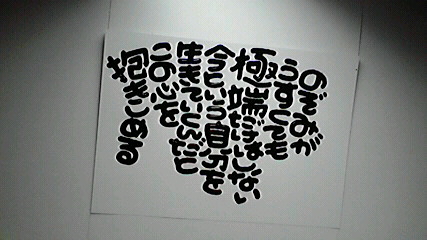 のぞみが
うすくても
極端なはしない
今という自分を
生きていくんだと
この心を
抱きしめる